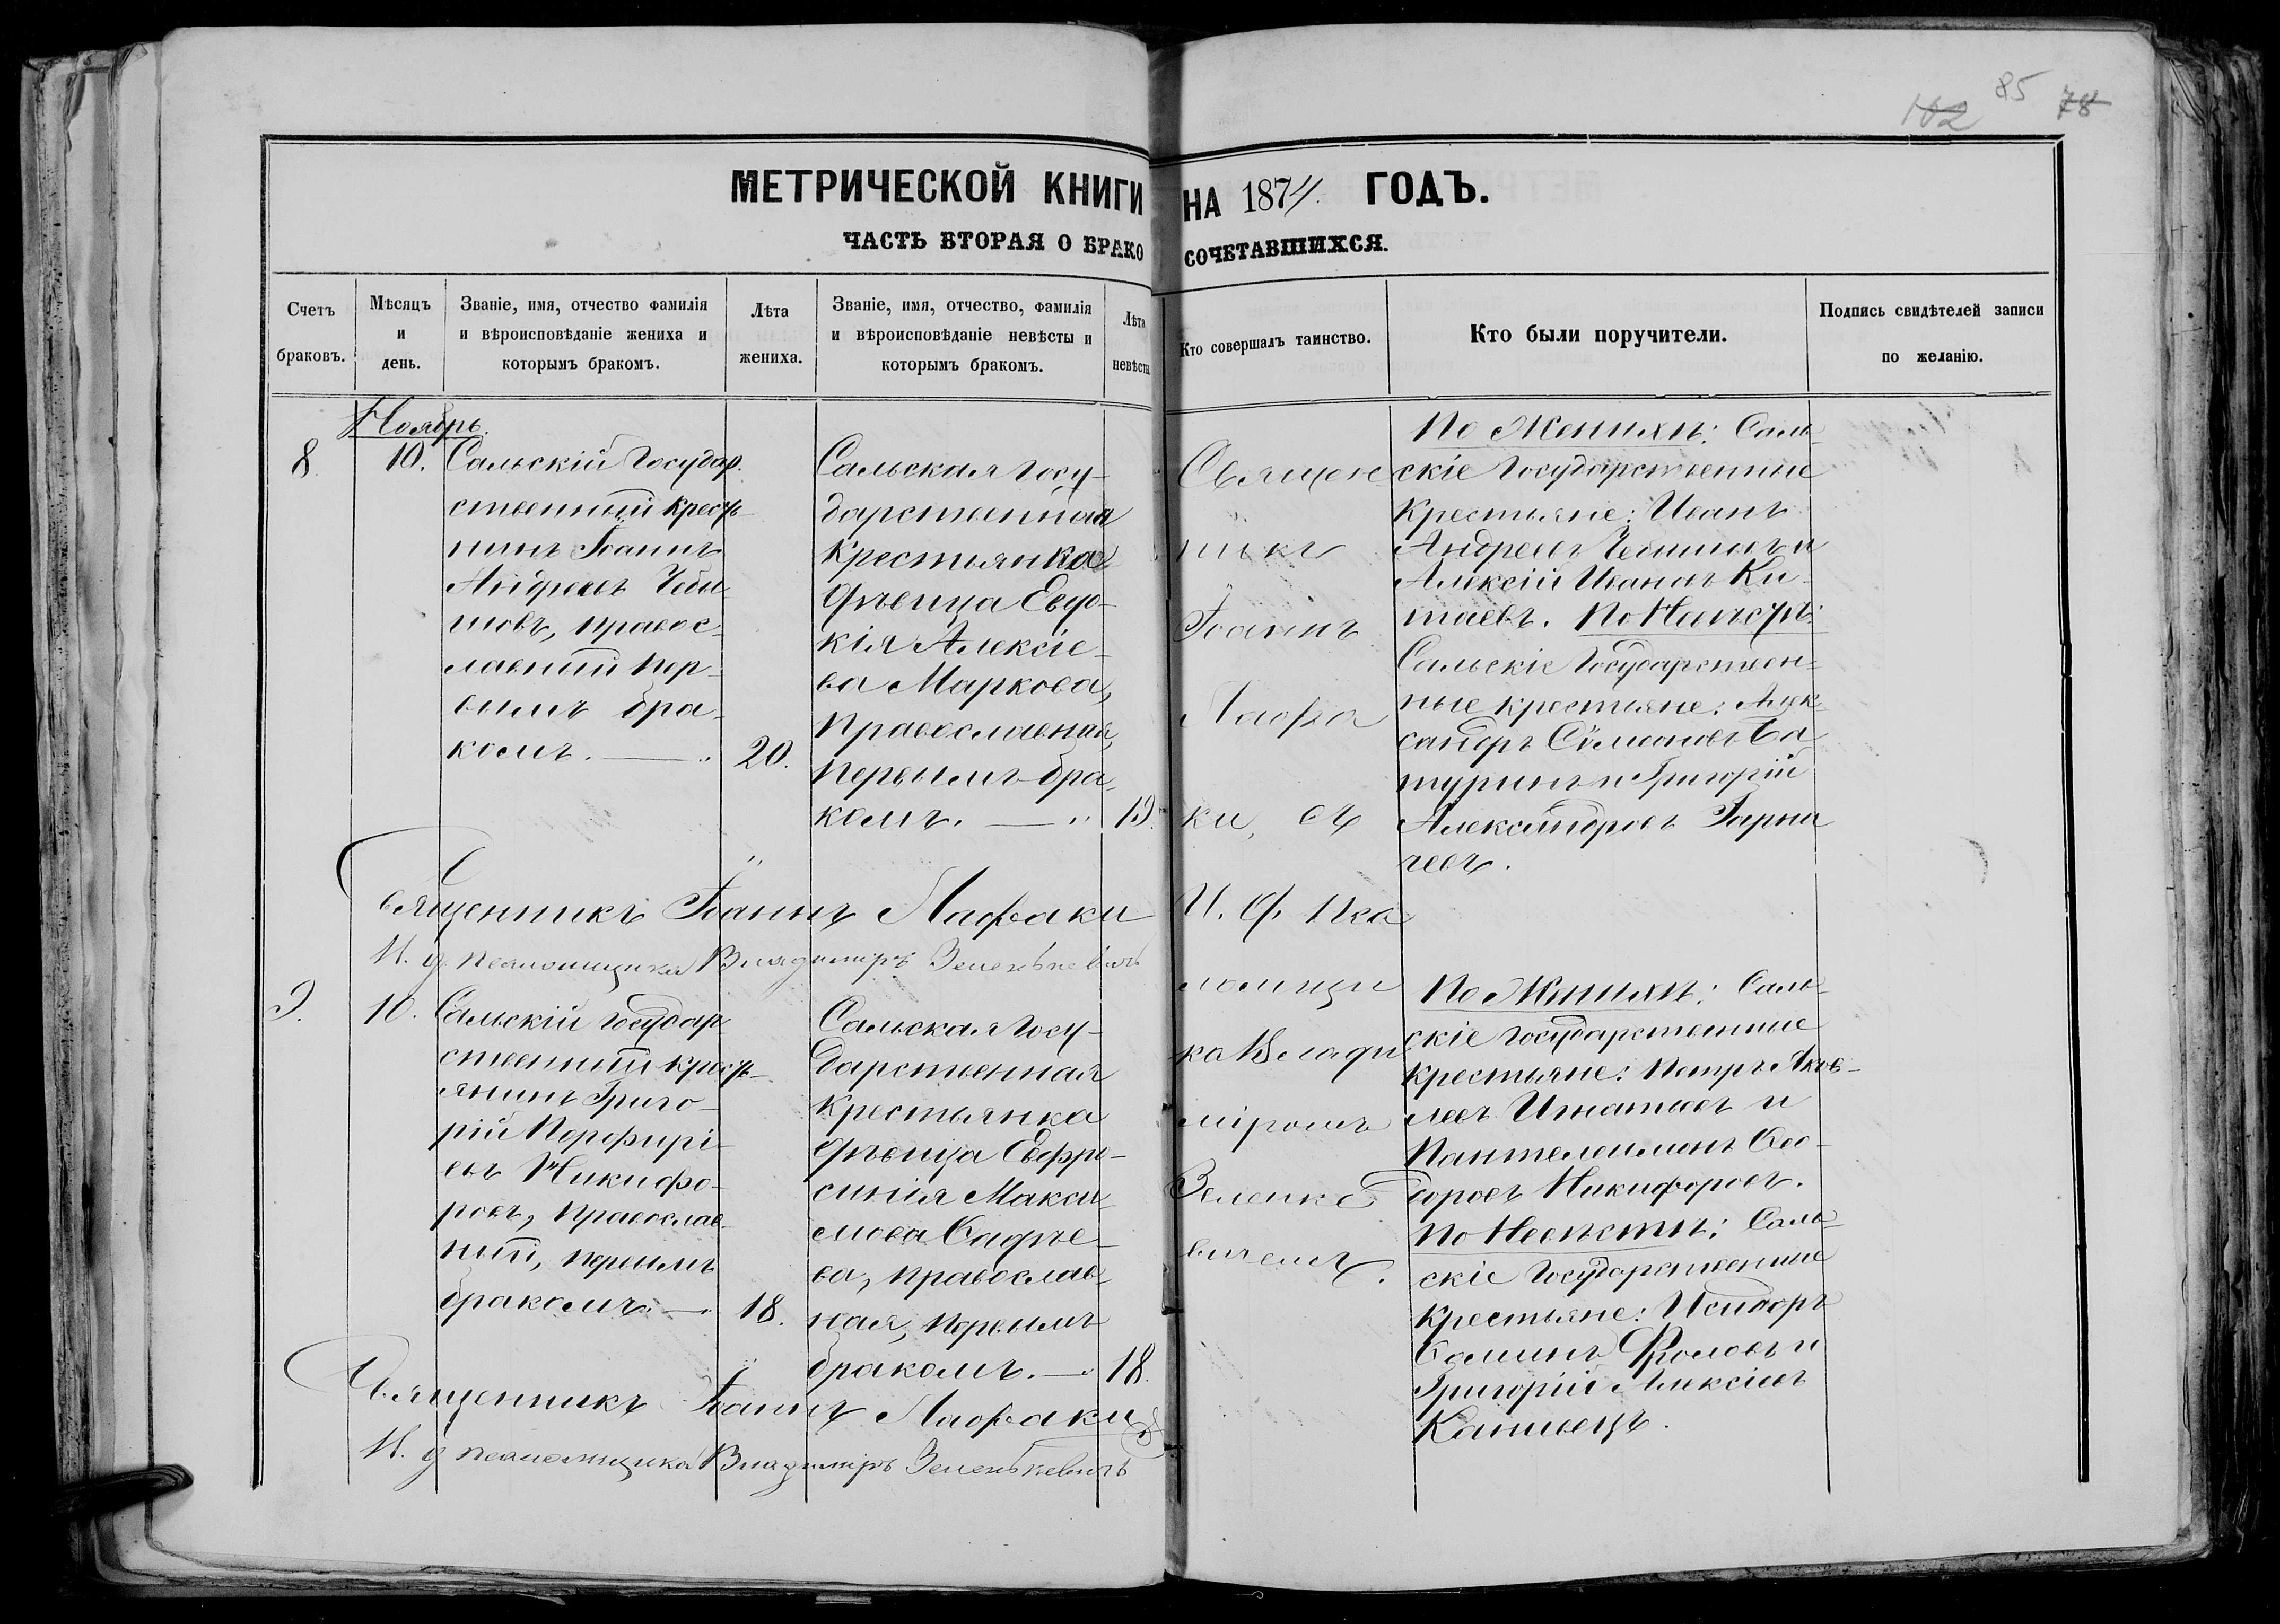 102 85 78
МЕТРИЧЕСКОЙ КНИГИ НА 1874. ГОДЪ.
ЧАСТЬ ВТОРАЯ О БРАКОСОЧЕТАВШИХСЯ.
Счетъ браковъ.
Мѣсяцъ и день.
Званіе, имя, отчество фамилія
и вѣроисповѣданіе жениха и
которымъ бракомъ.
Лѣта жениха.
Званіе, имя, отчество, фамилія
и вѣроисповѣданіе невѣсты и
которымъ бракомъ.
Лѣта невѣсты
Кто совершалъ таинство.
Кто были поручители.
Подпись свидѣтелей записи
по желанію.
Ноябрь.
8.
10.
Сальскій Государ-
ственный кресть-
нинъ Іоаннъ
Андреевъ Чебы-
шовъ, правос-
лавный пер-
вымъ бра-
комъ.
20.
Сальская Госу-
дарственная
крестьянка
дѣвица Евдо-
кія Алексіе-
ва Маркова,
православная,
первымъ бра-
комъ.
19.
Священ
никъ
Іоаннъ
Лафа
ки, съ
И. д. Пса
ломщи
ка Влади
міромъ
Зеленке
вичемъ.
По Женихѣ: Саль-
скіе Государственные
крестьяне: Иванъ
Андреевъ Чебышовъ и
Алексій Ивановъ Ки-
таевъ. По Невѣстѣ:
Сальскіе Государствен-
ные крестьяне: Алек
сандръ Симеоновъ Ба
туринъ и Григорій
Александровъ
Священникъ Іоаннъ Лафаки
И. д. псаломщика Владимиръ Зеленкевичъ
9.
10.
Сальскій Государ
ственный кресть-
янинъ Григо-
рій Порфирі-
евъ Никифо-
ровъ, православ-
ный, первымъ
бракомъ.
18.
Сальская Госу-
дарственная
крестьянка
дѣвица Евфро-
синія Макси-
мова Фадѣе-
ва, православ-
ная, первымъ
бракомъ.
18.
По Женихѣ: Саль-
скіе Государственные
крестьяне: Петръ Яков-
левъ Игнатьевъ и
Пантелеимонъ Ѳео-
доровъ Никифоровъ.
По Невѣстѣ: Саль-
скіе Государственные
крестьяне: Исидоръ
Фроловъ и
Григорій Алексіевъ
Священникъ Іоаннъ Лафаки
И. д. псаломщика Владимиръ Зеленкевичъ